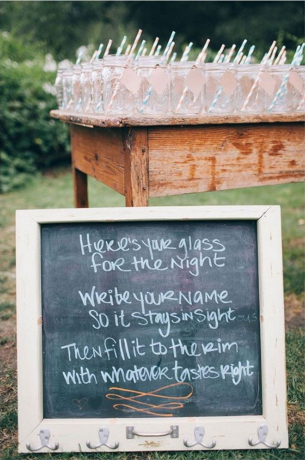 Here's your glass
for the Night
Write your Name
So it Stays in Sight
Then fill it to the rim
with whatever tastes right